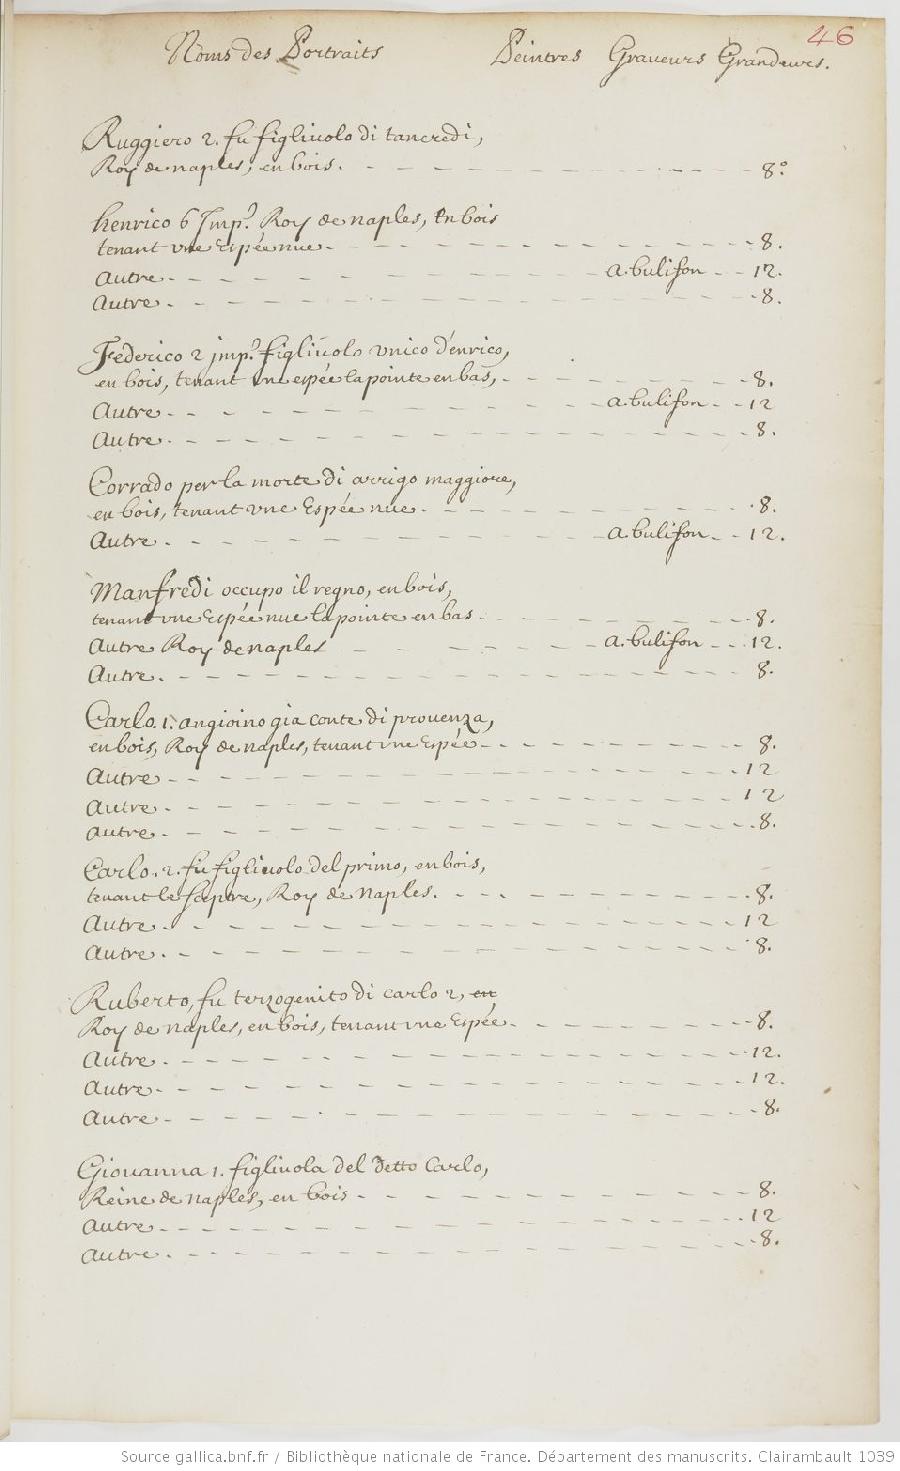 46
Noms des Portraits Peintres Graveurs Grandeurs.
Ruggiero 2. fu figliuolo di tancredi,
Roy de naples, en bois. 8°
henrico 6 Imp.r Roy de naples, En bois
tenant une Espée nue 8.
Autre a. bulifon 12.
Autre 8.
Federico 2 imp.r figliuolo unico d'enrico,
en bois, tenant une espée la pointe en bas, 8.
Autre a. bulifon 12
Autre 8.
Corrado per la morte di arrigo maggiore,
en bois, tenant une Espée nue 8.
Autre a. bulifon 12.
Manfredi occupo il regno, en bois,
tenant une Espée nue la pointe en bas 8.
Autre Roy de naples a. bulifon 12.
Autre 8.
Carlo 1. angioino gia conte di prouenza,
en bois, Roy de naples, tenant une Espée 8.
Autre 12
Autre 12
Autre 8.
Carlo. 2. fu figliuolo del primo, en bois,
tenant le sceptre, Roy de Naples. 8.
Autre 12
Autre 8.
Ruberto, fu terzogenito di carlo 2, en
Roy de Naples, en bois, tenant une Espée 8.
Autre 12.
Autre 12.
Autre 8.
Giouanna 1. figliuola del detto Carlo,
Reine de naples, en bois 8.
Autre 12
Autre 8.
Source gallica.bnf.fr / Bibliothèque nationale de France. Département des manuscrits. Clairambault 1039